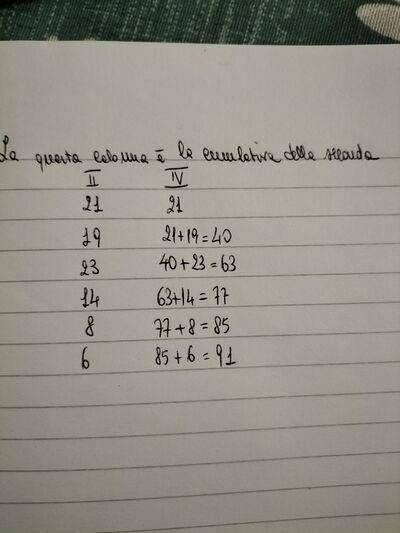 La quarta colonna è la cumulativa della seconda
II IV
21 21
19 21+19=40
23 40+23=63
14 63+14=77
8 77+8=85
6 85+6=91